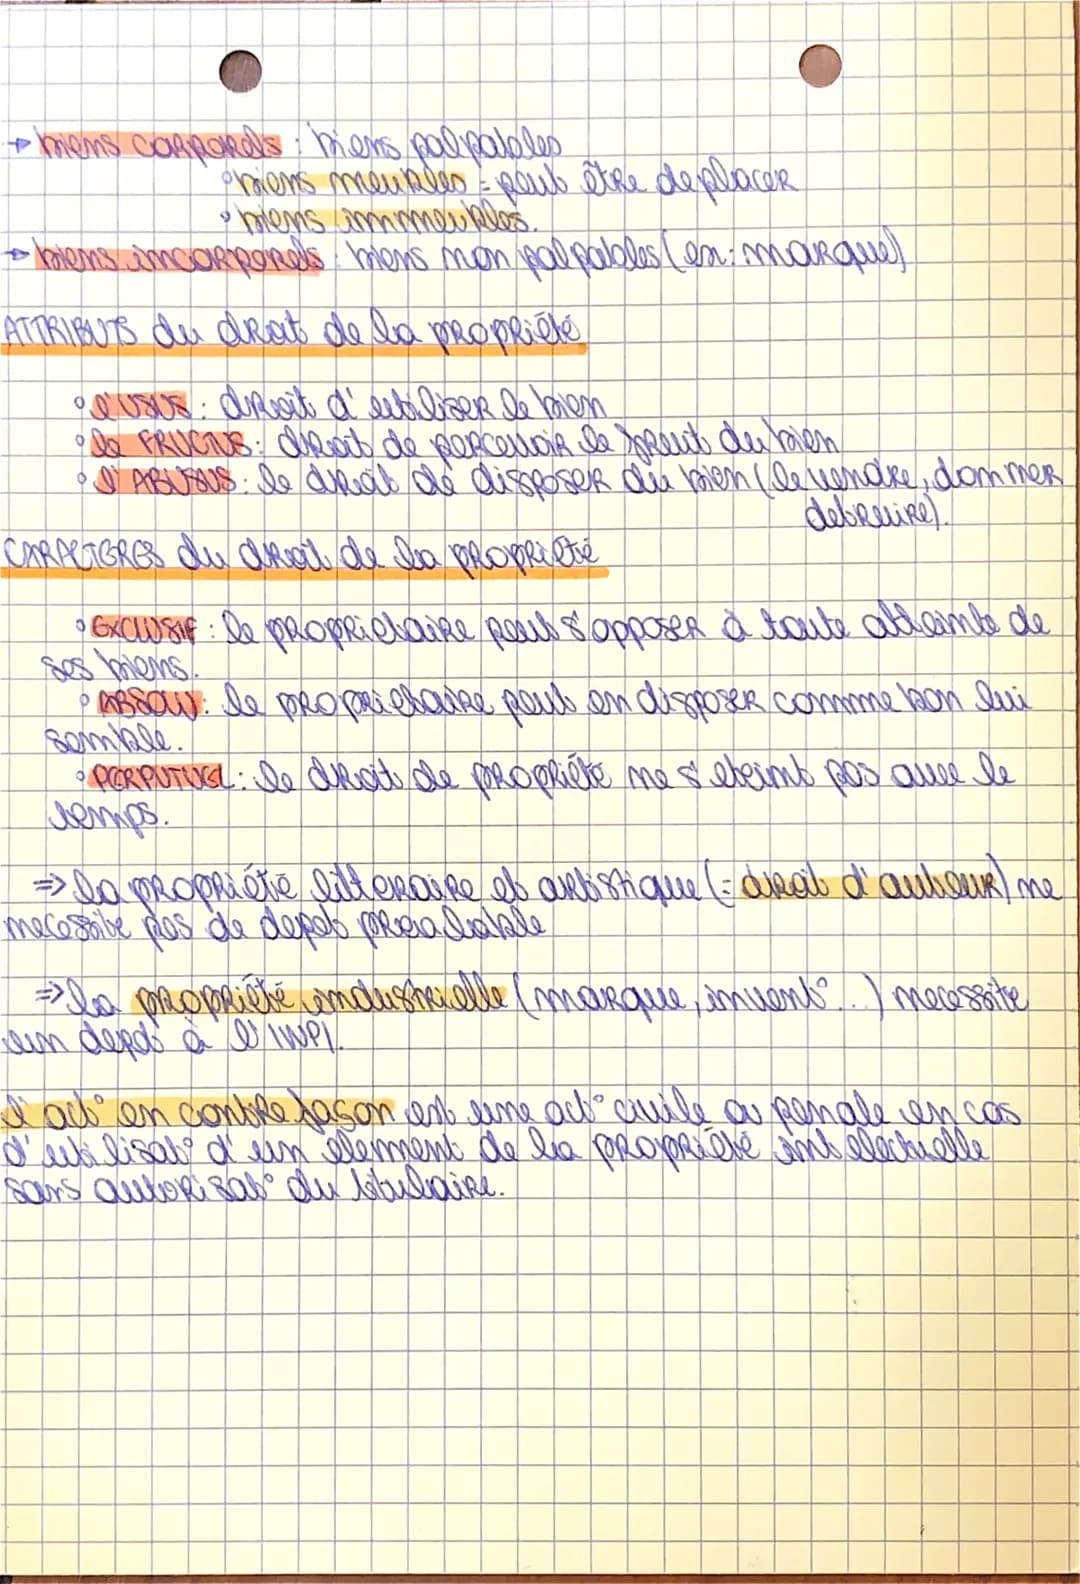 → biens corporels : biens palpables
° biens meubles = peut être deplacer
° biens immeubles.
→ biens incorporels : biens non palpables (ex: marque)
ATTRIBUTS du droit de la propriété
° l'USUS : droit d'utiliser le bien
° le FRUCTUS : droit de percevoir le fruit du bien
° l'ABUSUS : le droit de disposer du bien (le vendre, donner
detruire).
CARACTERES du droit de la propriété
° EXCLUSIF : le proprietaire peut s'opposer à toute atteinte de
ses biens.
° ABSOLU : le proprietaire peut en disposer comme bon lui
semble.
° PERPUTUEL : le droit de propriété ne s'eteint pas avec le
temps.
⇒ la propriété litteraire et artistique (= droit d'auteur) ne
necessite pas de depot prealable
⇒ la propriété industrielle (marque, invent° ...) necessite
un depot à l'INPI.
l'act° en contrefason est une act° civile ou penale en cas
d'utilisat° d'un element de la propriété intelectuelle
sans autorisat° du titulaire.